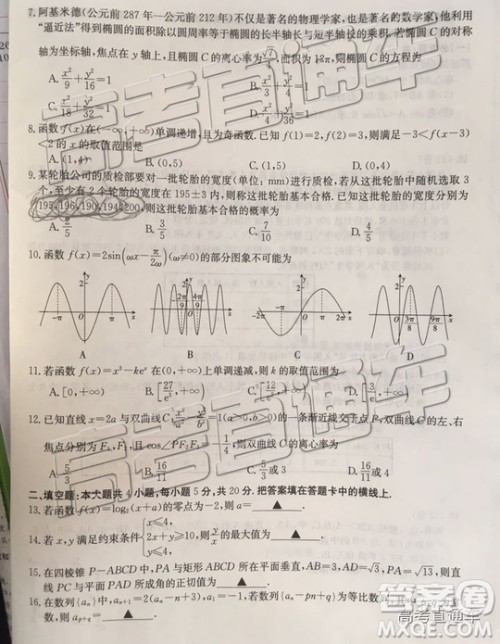 7. 阿基米德(公元前 287 年—公元前 212 年)不仅是著名的物理学家,也是著名的数学家,他利用
“逼近法”得到椭圆的面积除以圆周率等于椭圆的长半轴长与短半轴长的乘积. 若椭圆 C 的对称
轴为坐标轴,焦点在 y 轴上,且椭圆 C 的离心率为 √7/4,面积为 12π,则椭圆 C 的方程为
A. x²/9+y²/16=1 B. x²/3+y²/4=1
C. x²/18+y²/32=1 D. x²/4+y²/36=1
8. 函数 f(x) 在(-∞,+∞)单调递增,且为奇函数. 已知 f(1)=2, f(2)=3, 则满足 -3<f(x-3)
<2 的 x 的取值范围是
A. (1,4) B. (0,5) C. (1,5) D. (0,4)
9. 某轮胎公司的质检部要对一批轮胎的宽度(单位:mm)进行质检,若从这批轮胎中随机选取 3
个,至少有 2 个轮胎的宽度在 195±3 内,则称这批轮胎基本合格. 已知这批轮胎的宽度分别为
195,196,190,194,200,则这批轮胎基本合格的概率为
A. 2/5 B. 3/5 C. 7/10 D. 4/5
10. 函数 f(x)=2sin(ωx-π/2ω)(ω≠0)的部分图象不可能为
A B C D
11. 若函数 f(x)=x³-keˣ 在(0,+∞)上单调递减,则 k 的取值范围为
A. [0,+∞) C. [12/e²,+∞) D. [3/e,+∞)
12. 已知直线 x=2a 与双曲线 C: x²/a²-y²/b²=1(a>0,b>0)的一条渐近线交于点 P,双曲线 C 的左、右
焦点分别为 F₁,F₂,且 ,则双曲线 C 的离心率为
A. 5/3 B. 16/11 C. 5/3或3 D. 16/11或4
二、填空题:本大题共 4 小题,每小题 5 分,共 20 分. 把答案填在答题卡中的横线上.
13. 若函数 f(x)=log₂(x+a) 的零点为 -2,则 a= ▲ .
14. 若 x,y 满足约束条件 则 y/x 的最大值为 ▲ .
15. 在四棱锥 P—ABCD 中,PA 与矩形 ABCD 所在平面垂直,AB=3, AD=√3, PA=√13,则直
线 PC 与平面 PAD 所成角的正切值为 ▲ .
16. 在数列{aₙ}中,aₙ₊₁=2(aₙ-n+3),a₁=-1,若数列{aₙ-pn+q}为等比数列
高考直通车
答案圈